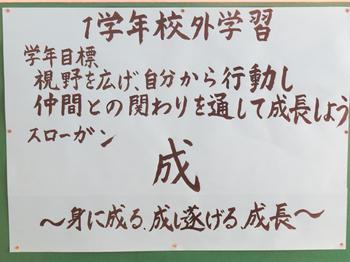 1学年校外学習
学年目標
視野を広げ、自分から行動し
仲間との関わりを通して成長しよう
スローガン
成
～身に成る、成し遂げる、成長～